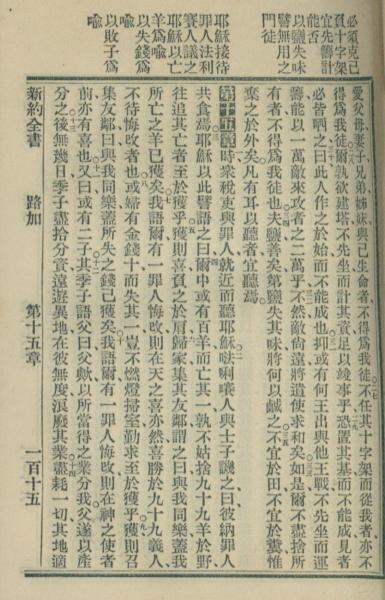 必須克己
負十字架
宜先籌計
能否
以鹽失味
譬無用之
門徒
耶穌接待
罪人法利
賽人議之
耶穌以亡
羊為喻
以失錢為
喻
以敗子為
喻
愛父母妻子兄弟姊妹與己生命者不得為我徒不任其十字架而從我者亦不
得為我徒爾孰欲建塔不先坐而計其資足以竣事乎恐置其基而不能成見者
必皆哂之曰此人作之於始而不能成也抑或有何王出與他王戰不先坐而運
籌能以一萬敵來攻者之二萬乎不然敵尚遠將遣使求和矣如是爾不盡捨所
有者不得為我徒也夫鹽善矣第鹽失其味將何以鹹之不宜於田不宜於糞惟
棄之於外矣凡有耳以聽者宜聽焉
第十五章 時衆稅吏與罪人就近而聽耶穌唎人與士子譏之曰彼納罪人
共食焉耶穌以此譬語之曰爾中或有百羊而亡其一孰不姑捨九十九羊於野
往追其亡者至於獲乎獲則喜負之於肩歸家集其友鄰謂之曰與我同樂蓋我
所亡之羊已獲矣我語爾有一罪人悔改則在天之喜亦然喜勝於九十九義人
不待悔改者也或婦有金錢十而失其一豈不燃燈掃室勤求至於獲乎獲則召
集友鄰曰與我同樂蓋所失之錢已獲矣我語爾有一罪人悔改則在神之使者
前亦有喜也又曰或有二子其季子語父曰父歟以所當得之業分我父遂以產
分之後無幾日季子盡拾分資遠遊異地在彼無度浪廢其業盡耗一切其地適
新約全書 路加 第十五章 一百十五